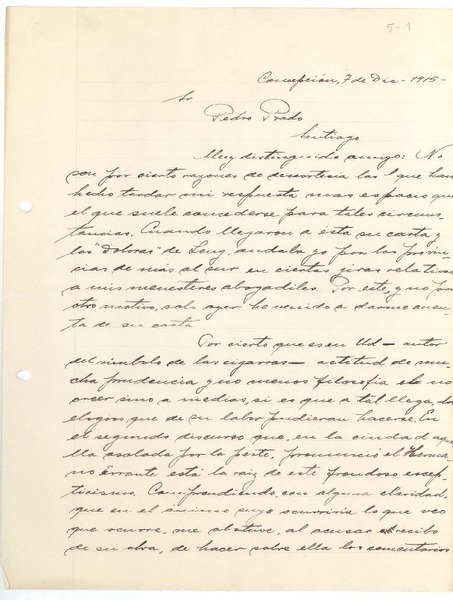 5-1
Concepción, 7 de Dic - 1915 -
Sr
Pedro Prado
Santiago
Muy distinguido amigo: No
son por cierto razones de desatencia las que han
hecho tardar mi respuesta mas espacio que
el que suele concederse para tales circuns
tancias. Cuando llegaron a ésta su carta y
las "Doloras" de Leng, andaba yo por las provin
cias de más al sur en ciertas giras relativas
a mis menesteres abogadiles. Por este, y no por
otro motivo, solo ayer he venido a darme cuen
ta de su carta.
Por cierto que es en Ud - autor
del símbolo de las cigarras - actitud de mu
cha prudencia y no menos filosofía el no
creer sino a medias, si es que a tal llega, los
elogios que de su labor pudieran hacerse. En
el segundo discurso que, en la ciudad aque
lla asolada por la peste, pronunció el Herma
no Errante está la raiz de este frondoso escep
ticismo. Comprendiendo, con alguna claridad
que en el ánimo suyo ocurriría lo que veo
que ocurre, me abstuve, al acusar recibo
de su obra, de hacer sobre ella los comentarios